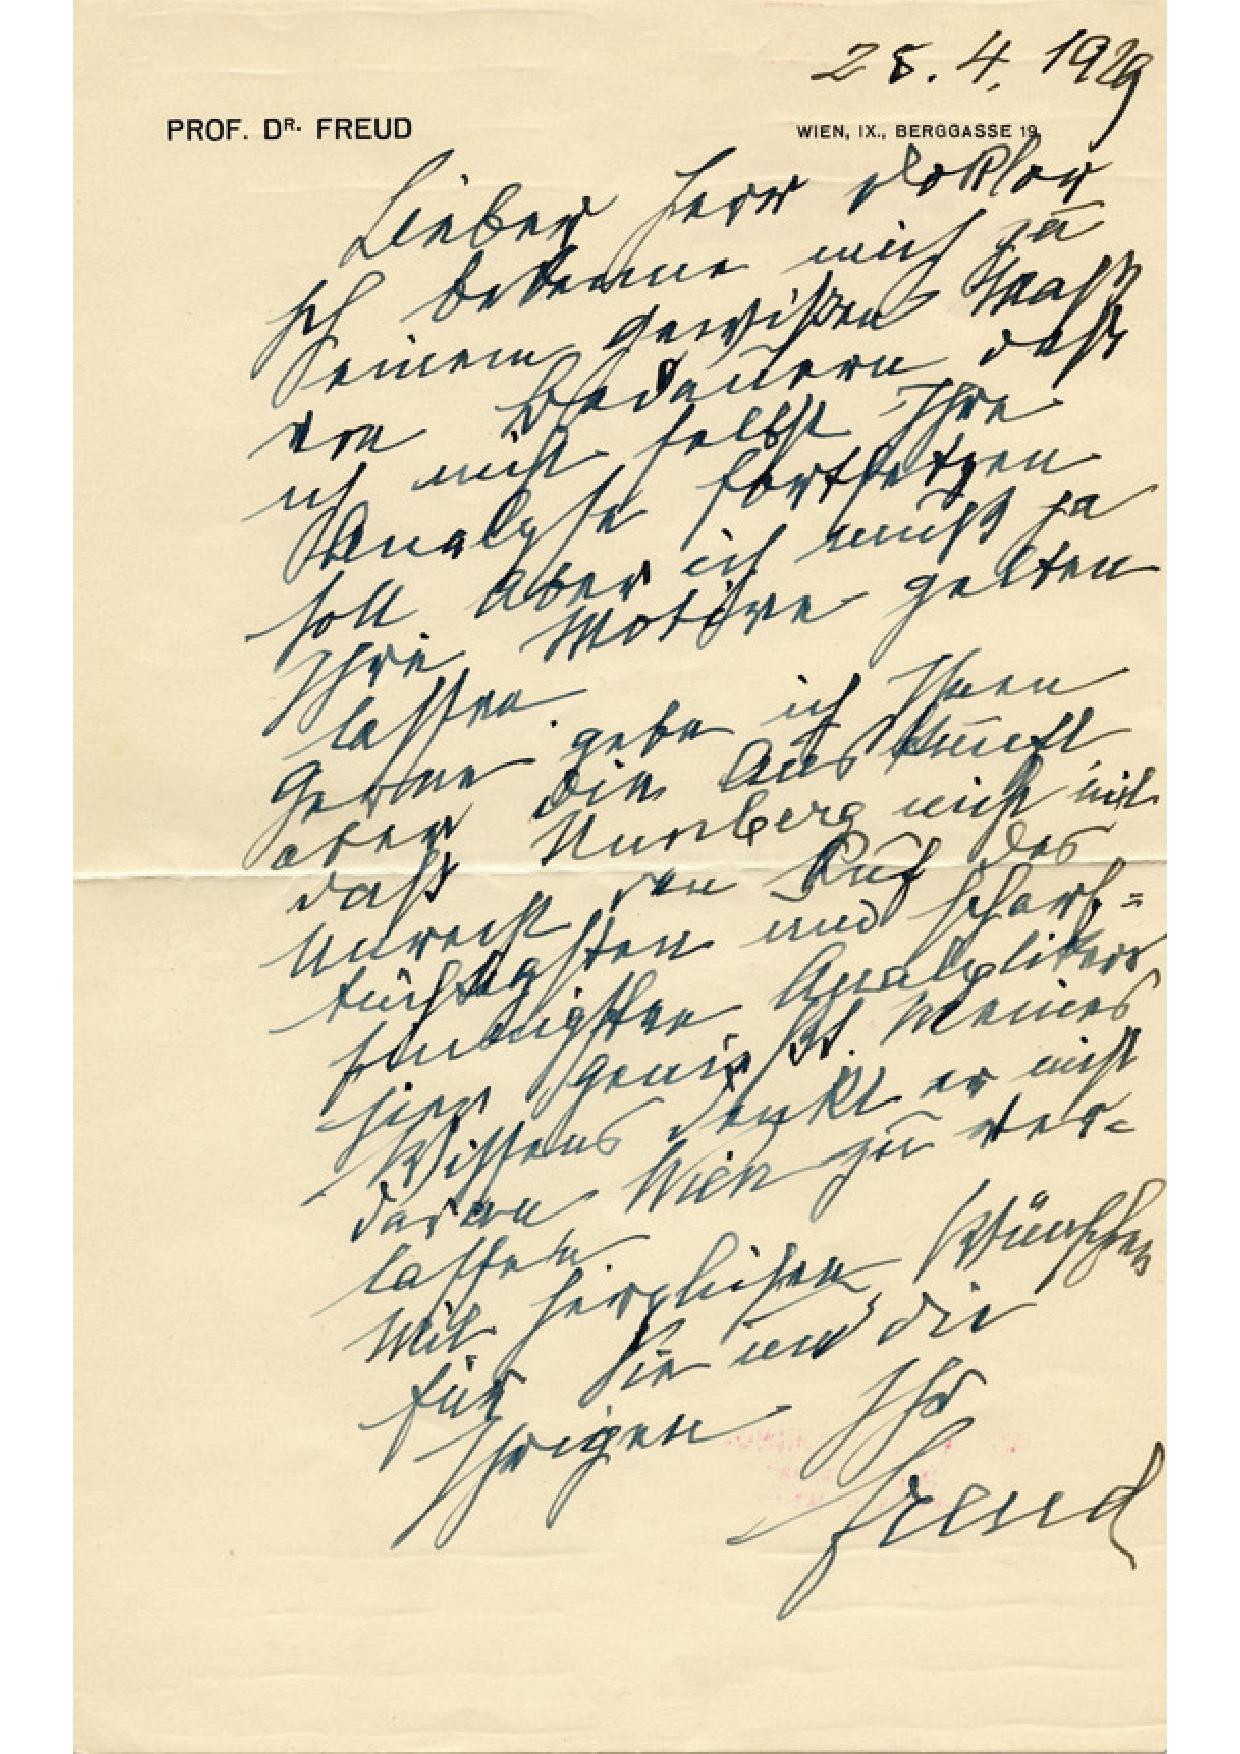 28.4.1929
PROF. DR. FREUD
WIEN, IX., BERGGASSE 19.
Lieber Herr Doktor
Ich bekenne mich zu
einem gewissen Maaß
von Bedauern daß
ich nicht selbst Ihre
Analyse fortsetzen
soll aber ich muß ja
Ihre Motive gelten
lassen.
Gerne gebe ich Ihnen
aber die Auskunft,
daß Nunberg nicht mit
Unrecht den Ruf des
tüchtigsten und scharf=
sinnigsten Analytikers
hier genießt. Meines
Wissens denkt er nicht
daran Wien zu ver-
lassen.
Mit herzlichen Wünschen
für Sie und die
Ihrigen Ihr
Freud